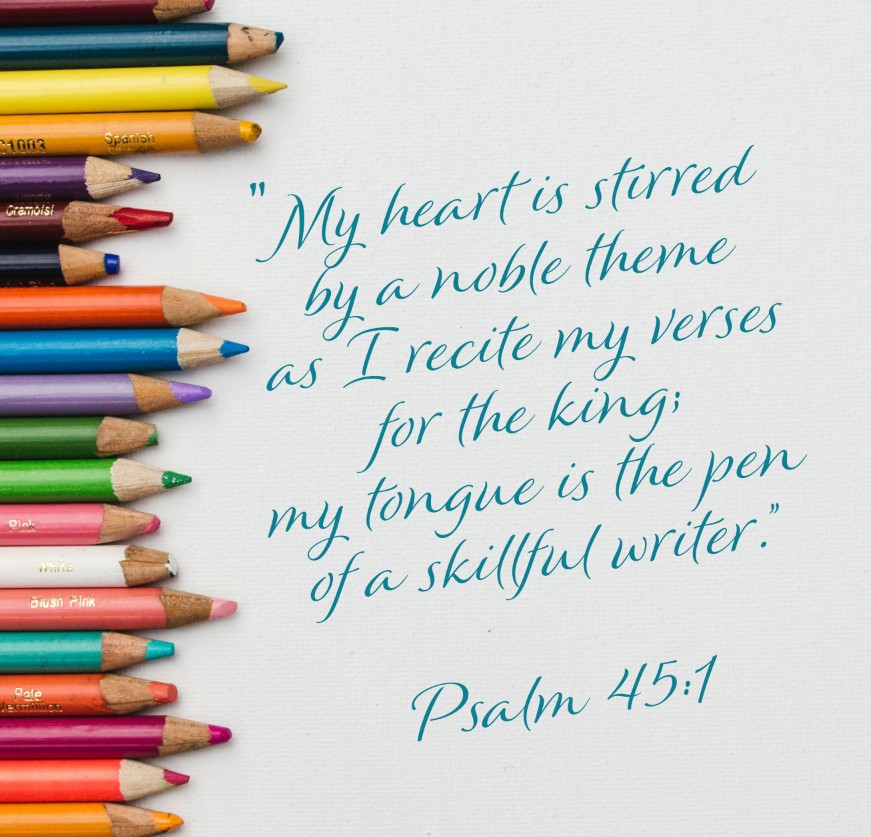 C1003 Spanish
Crambisi
" My heart is stirred
by a noble theme
as I recite my verses
for the king;
my tongue is the pen
of a skillful writer."
Pink
White
Blush Pink
Psalm 45:1
Pale
Vermilion